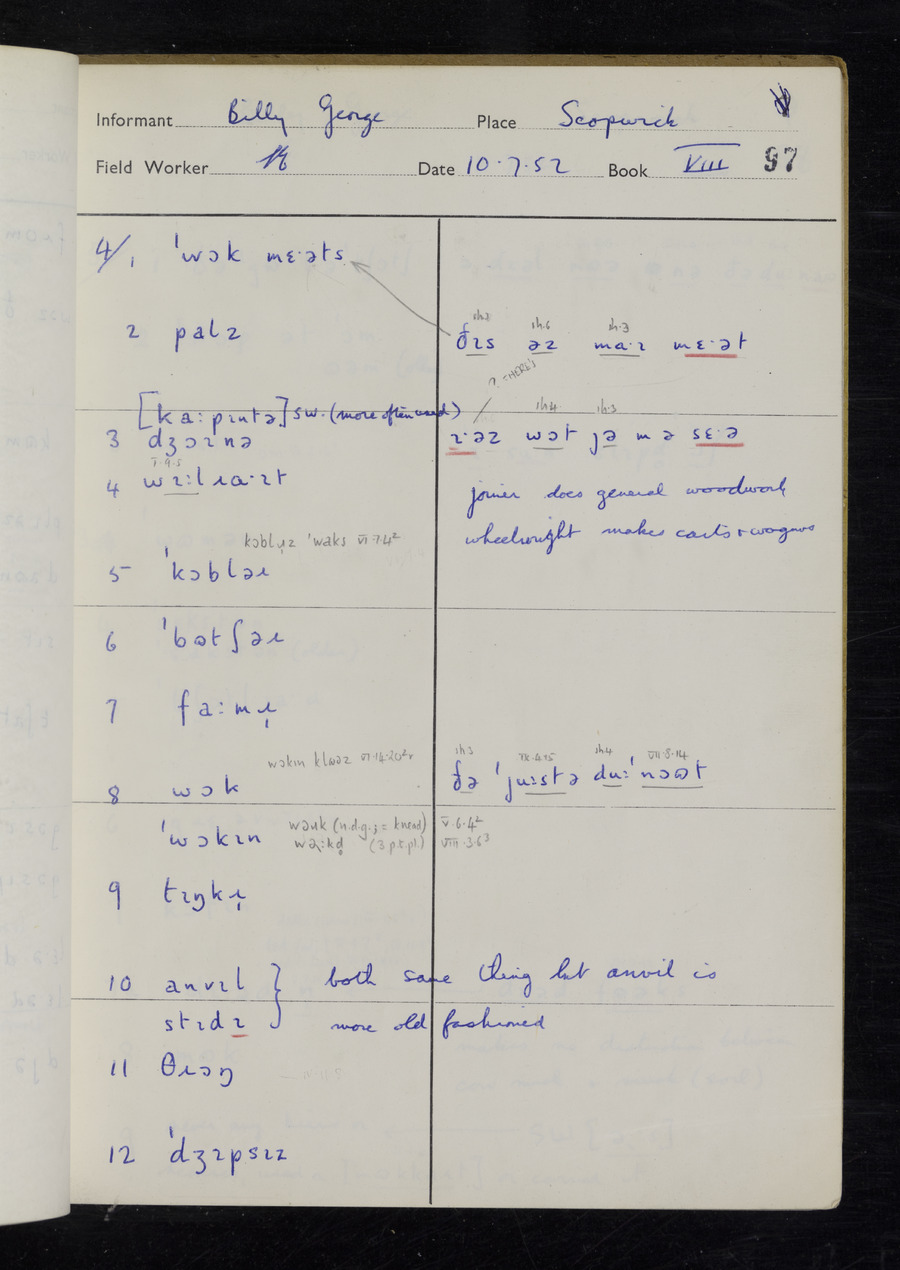 Informant Billy George Place Scopwick
Field Worker Date 10.7.52 Book VIII 97
4/1 ˈwɔk mɛ·əts
2 palz
ðɪs əz ma·ɪ mɛ·ət
?. THERE'S
[ka:pɪntə] sw. (more often used)
3 dʒɔɪnə
ɪ·əz wɔt jə m ə sɛ·ə
V.9.5
4 wɪ:l ɹa·ɪt
joiner does general woodwork
wheelwright makes carts + wagons
kɔblɹ̩z ˈwaks VI 7.4²
5 ˈkɔbləɹ
6 ˈbɷtʃəɹ
7 fa:mɹ̩
wɔkɪn klɷəz VI.14.20²
8 wɔk
ðə ˈju:stə du: ˈnɔɷt
VII.8.14
ˈwɔkɪn wəɹk (n.d.g.; = knead) V.6.4²
(3 p.t.pl.) VIII.3.6³
9 tɪŋkɹ̩
10 anvɪl } both same thing but anvil is
stɪdɪ } more old fashioned
11 θɹɔŋ
12 ˈdʒɪpsɪz